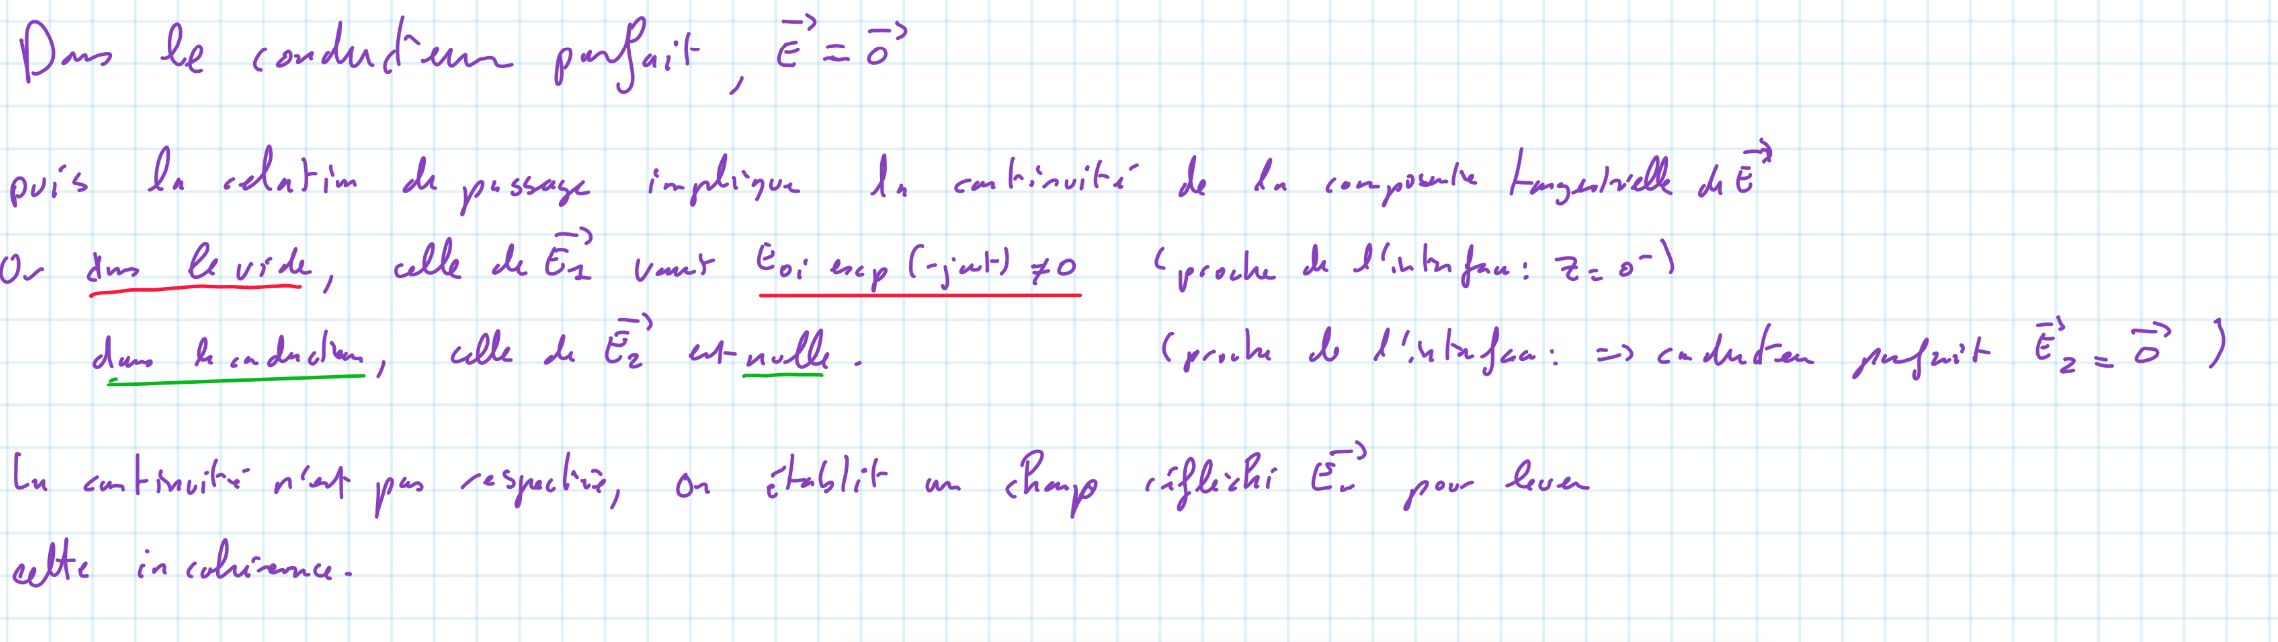 Dans le conducteur parfait, \vec{E} = \vec{0}
puis la relation de passage implique la continuité de la composante tangentielle de \vec{E}
Or dans le vide, celle de \vec{E_1} vaut E_{0i} exp(-jωt) ≠ 0 (proche de l'interface : z = 0^-)
dans le conducteur, celle de \vec{E_2} est nulle. (proche de l'interface : => conducteur parfait \vec{E}_2 = \vec{0})
La continuité n'est pas respectée, on établit un champ réfléchi \vec{E_r} pour lever
cette incohérence.